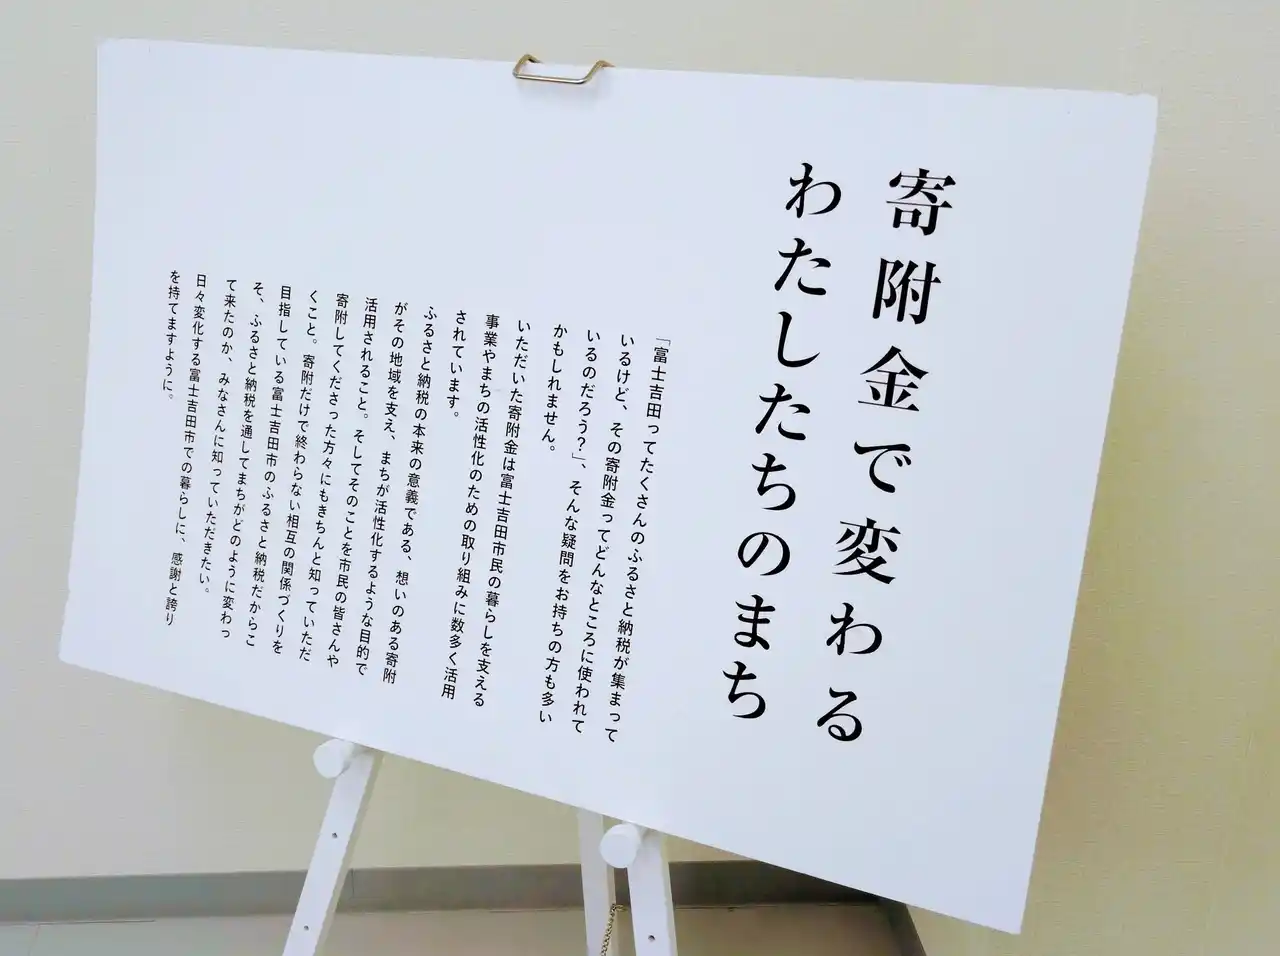 寄附金で変わる
わたしたちのまち
「富士吉田ってたくさんのふるさと納税が集まって
いるけど、その寄附金ってどんなところに使われて
いるのだろう？」、そんな疑問をお持ちの方も多い
かもしれません。
いただいた寄附金は富士吉田市民の暮らしを支える
事業やまちの活性化のための取り組みに数多く活用
されています。
ふるさと納税の本来の意義である、想いのある寄附
がその地域を支え、まちが活性化するような目的で
活用されること。そしてそのことを市民の皆さんや
寄附してくださった方々にもきちんと知っていただ
くこと。寄附だけで終わらない相互の関係づくりを
目指している富士吉田市のふるさと納税だからこ
そ、ふるさと納税を通してまちがどのように変わっ
て来たのか、みなさんに知っていただきたい。
日々変化する富士吉田市での暮らしに、感謝と誇り
を持てますように。